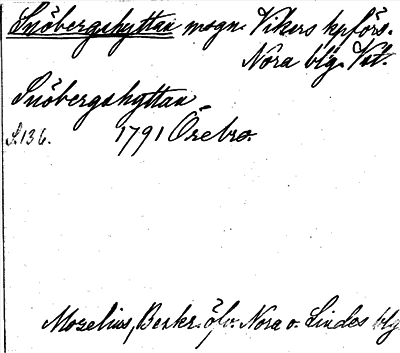 Snöbergshyttan mogn. Vikers kpförs.
Nora blg. Vst.
Snöbergshyttan
S.136. 1791 Örebro.
Mozelius, Beskr. öfv. Nora o. Lindes blg